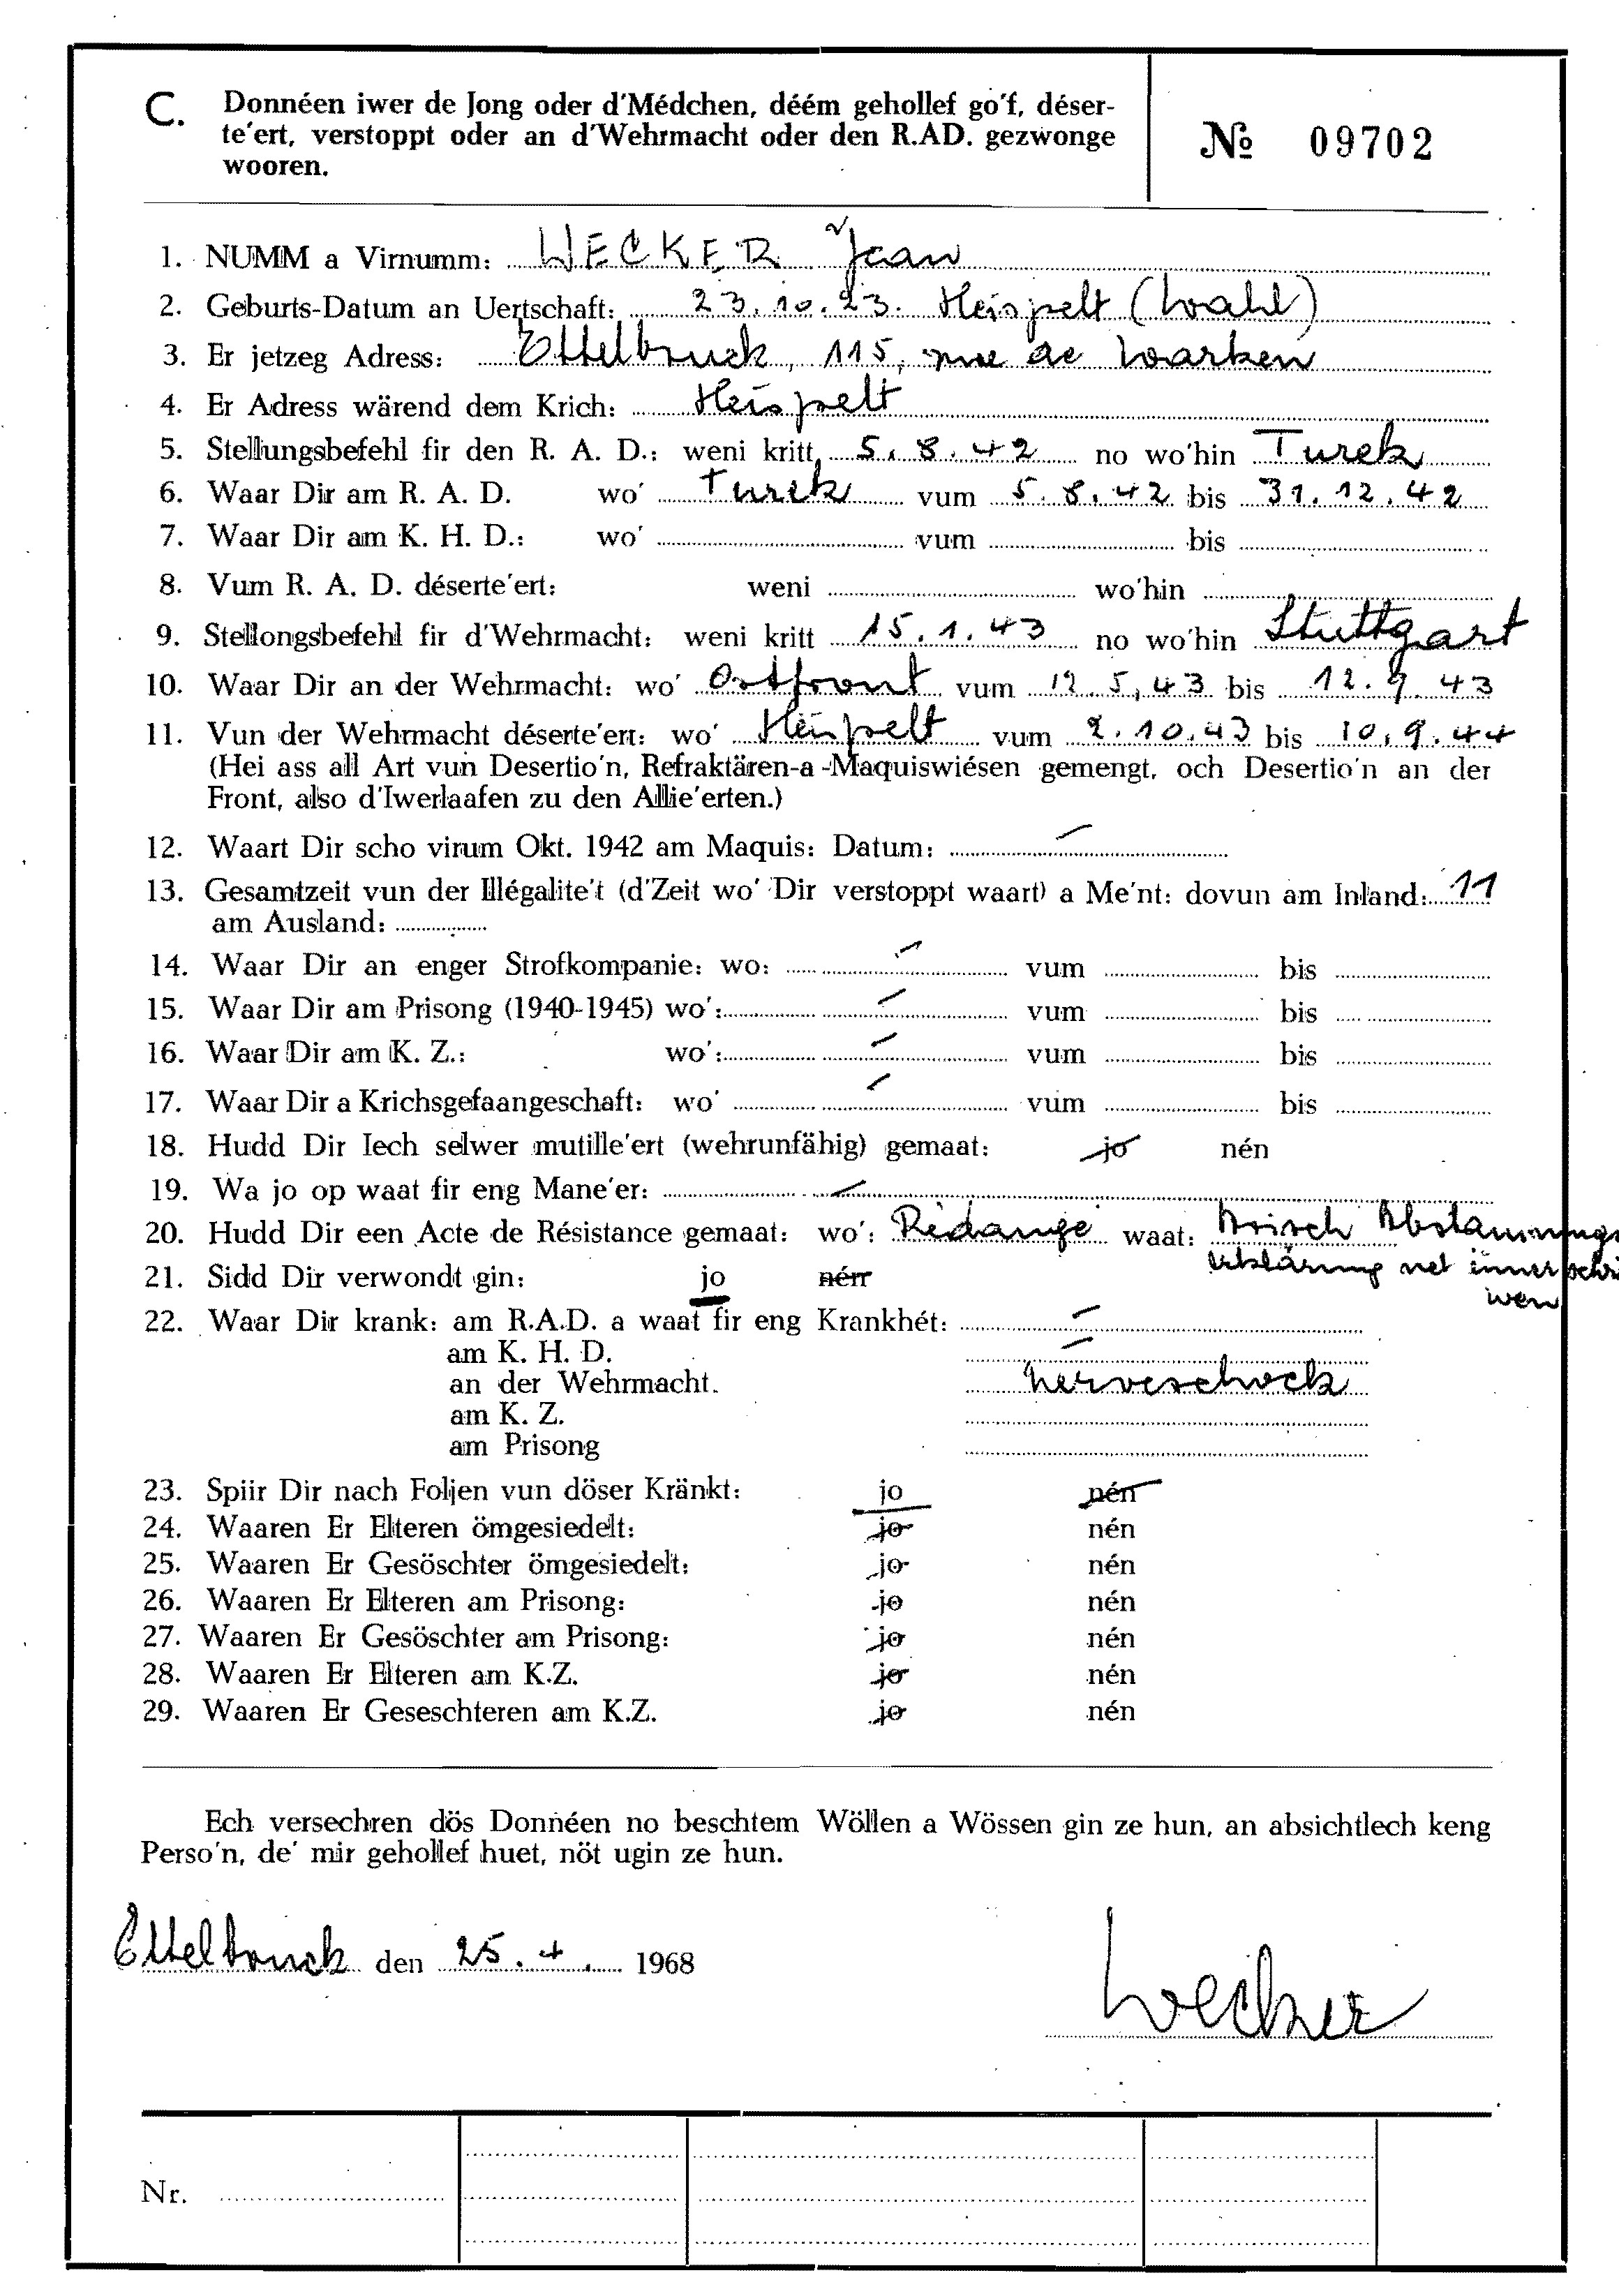 C. Donnéen iwer de Jong oder d'Médchen, déém gehollef go'f, déser-
te'ert, verstoppt oder an d'Wehrmacht oder den R.AD. gezwonge
wooren.
№ 09702
1. NUMM a Virnumm: WECKER Jean
2. Geburts-Datum an Uertschaft: 23.10.23. Heispelt (Wahl)
3. Er jetzeg Adress: Ettelbruck, 115, rue de Warken
4. Er Adress wärend dem Krich: Heispelt
5. Stellungsbefehl fir den R. A. D.: weni kritt 5. 8. 42 no wo'hin Turek
6. Waar Dir am R. A. D. wo' Turek vum 5. 8. 42 bis 31. 12. 42
7. Waar Dir am K. H. D.: wo' vum bis
8. Vum R. A. D. déserte'ert: weni wo'hin
9. Stellongsbefehl fir d'Wehrmacht: weni kritt 15. 1. 43 no wo'hin Stuttgart
10. Waar Dir an der Wehrmacht: wo' Ostfront vum 12. 5, 43 bis 12. 9. 43
11. Vun der Wehrmacht déserte'ert: wo' Heispelt vum 2. 10. 43 bis 10. 9. 44
(Hei ass all Art vun Desertio'n, Refraktären-a-Maquiswiésen gemengt, och Desertio'n an der
Front, also d'Iwerlaafen zu den Allie'erten.)
12. Waart Dir scho virum Okt. 1942 am Maquis: Datum: –
13. Gesamtzeit vun der Illégalite't (d'Zeit wo' Dir verstoppt waart) a Me'nt: dovun am Inland: 11
am Ausland:
14. Waar Dir an enger Strofkompanie: wo: – vum bis
15. Waar Dir am Prisong (1940-1945) wo': – vum bis
16. Waar Dir am K. Z.: wo': – vum bis
17. Waar Dir a Krichsgefaangeschaft: wo' – vum bis
18. Hudd Dir Iech selwer mutille'ert (wehrunfähig) gemaat: jo nén
19. Wa jo op waat fir eng Mane'er: –
20. Hudd Dir een Acte de Résistance gemaat: wo': Rédange waat: Arisch Abstammungs
erklärung net ënnerschri
wen
21. Sidd Dir verwondt gin: jo nén
22. Waar Dir krank: am R.A.D. a waat fir eng Krankhét: –
am K. H. D. –
an der Wehrmacht. Nerveschock
am K. Z.
am Prisong
23. Spiir Dir nach Foljen vun döser Kränkt: jo nén
24. Waaren Er Elteren ömgesiedelt: jo nén
25. Waaren Er Gesöschter ömgesiedelt: jo nén
26. Waaren Er Elteren am Prisong: jo nén
27. Waaren Er Gesöschter am Prisong: jo nén
28. Waaren Er Elteren am K.Z. jo nén
29. Waaren Er Geseschteren am K.Z. jo nén
Ech versechren dös Donnéen no beschtem Wöllen a Wössen gin ze hun, an absichtlech keng
Perso'n, de' mir gehollef huet, nöt ugin ze hun.
Ettelbruck den 25. 4. 1968
Wecker
Nr.